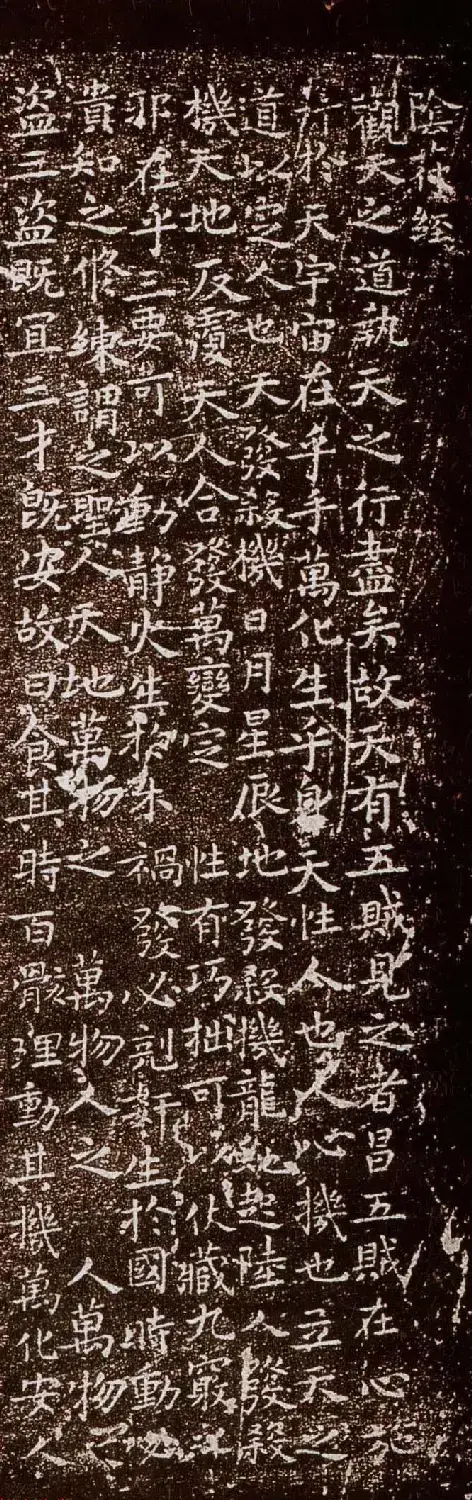 陰符經
觀天之道執天之行盡矣故天有五賊見之者昌五賊在心施
行於天宇宙在乎手萬化生乎身天性人也人心機也立天之
道以定人也天發殺機日月星辰地發殺機龍虵起陸人發殺
機天地反覆天人合發萬變定 性有巧拙可以伏藏九竅之
邪在乎三要可以動靜火生於木禍發必剋姧生於國時動必
貴知之修練謂之聖人天地萬物之 萬物人之 人萬物之
盜三盜既宜三才既安故曰食其時百骸理動其機萬化安人